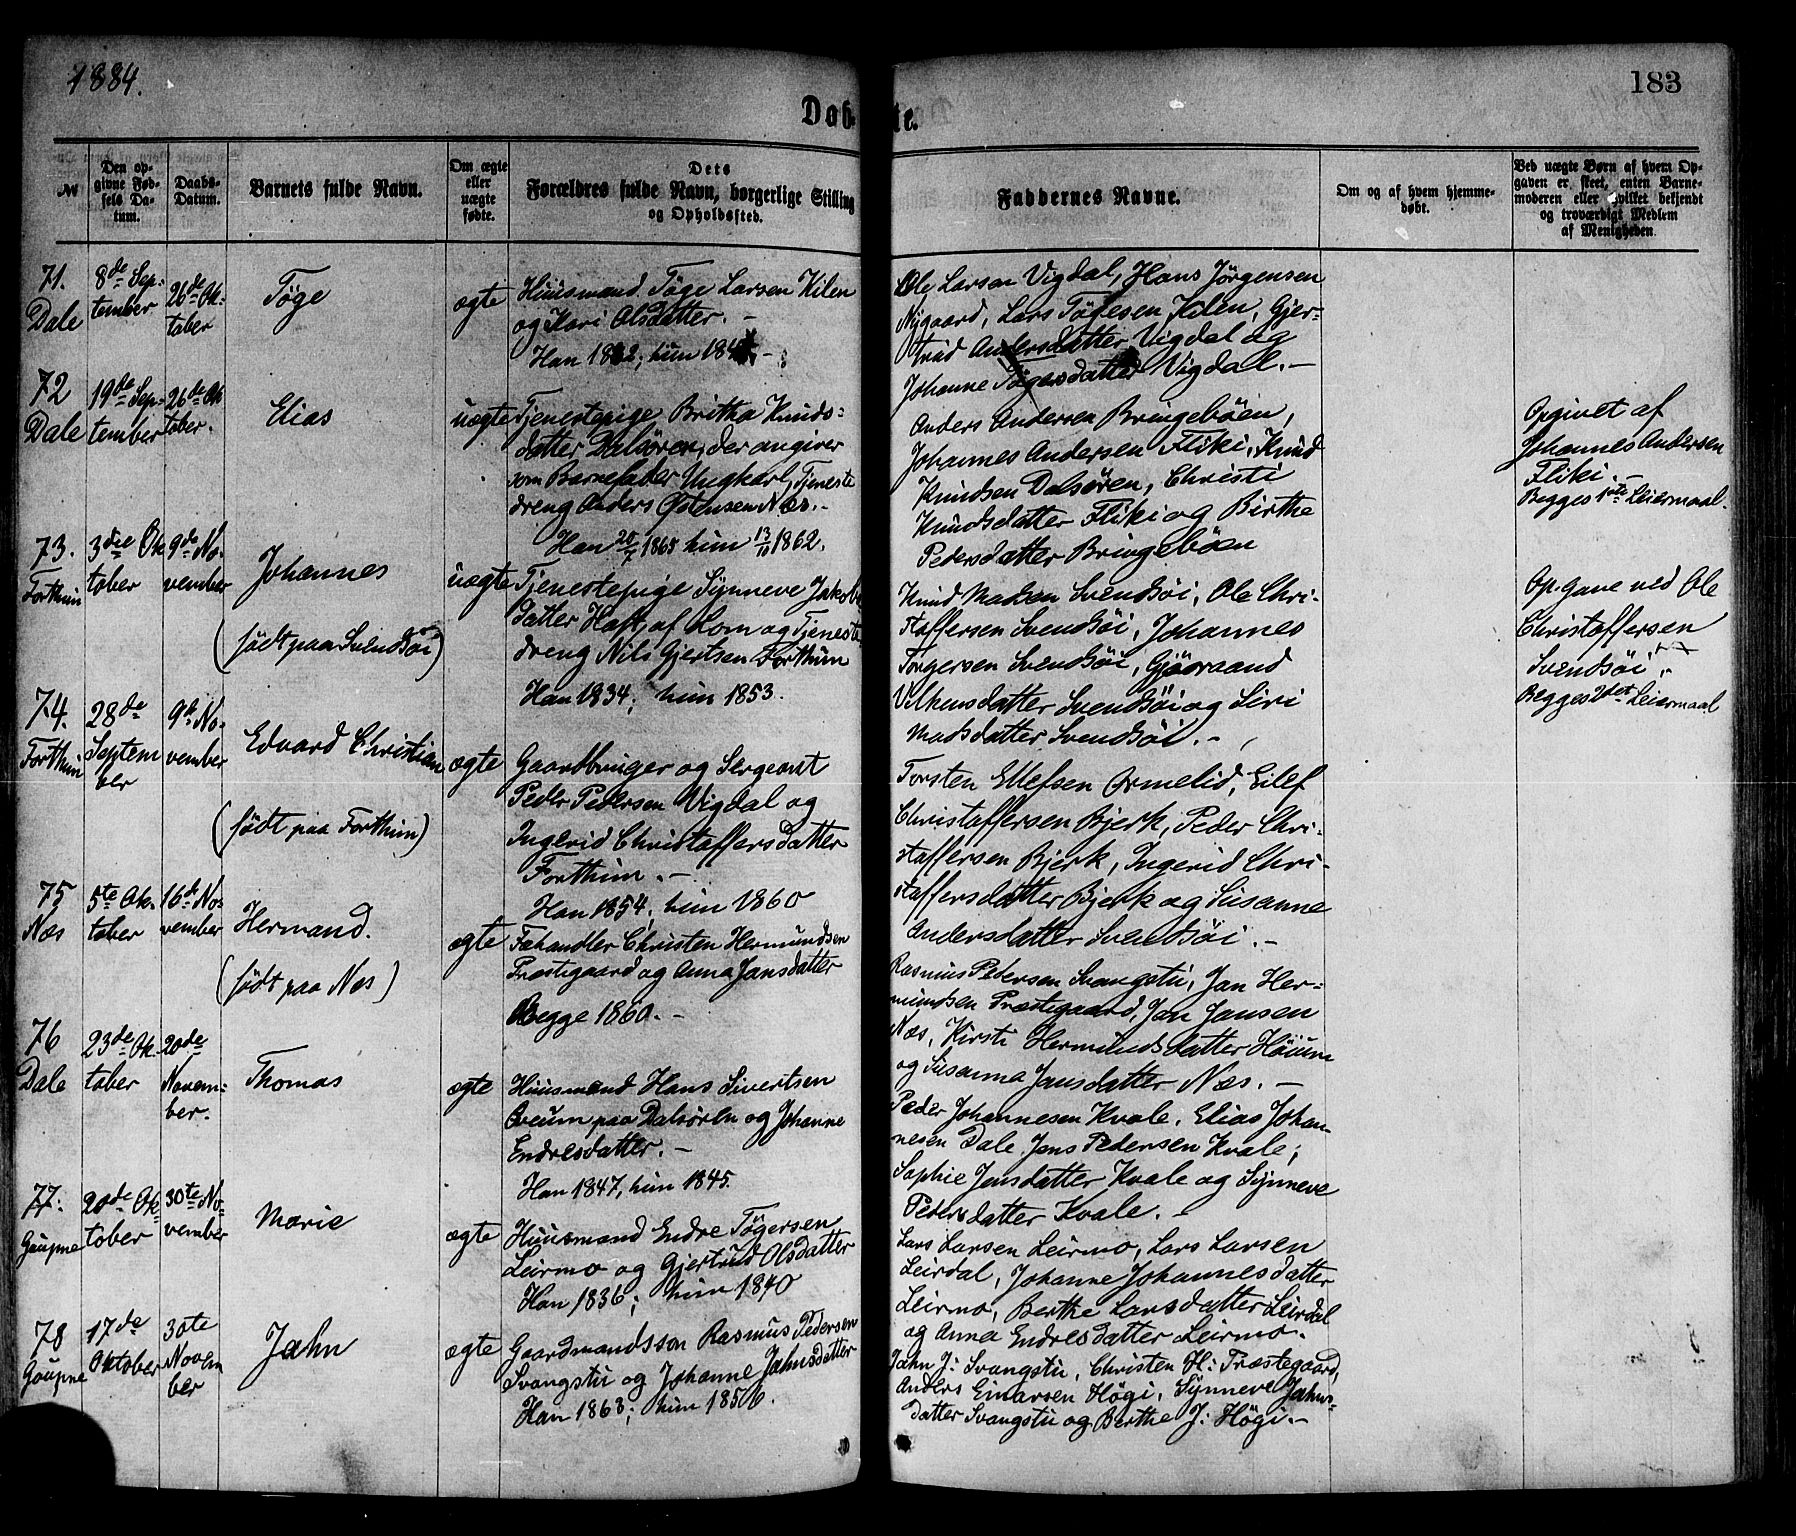 1884.
183
Døbte.
№
Den opgivne Fødsels Datum.
Daabs-Datum.
Barnets fulde Navn.
Om ægte eller uægte fødte.
Dets Forældres fulde Navn, borgerlige Stilling og Opholdssted.
Faddernes Navne.
Om og af hvem hjemmedøbt.
Ved uægte Børn af hvem Opgaven er skeet, enten Barnemoderen eller hvilket bekjendt og troværdigt Medlem af Menigheden.
71. Dale
8de September
26de Oktober
Töge
ægte
Huusmand Töge Larsen Kilen
og Kari Olsdatter. –
Han 1832; hun 184
Ole Larsen Vigdal, Hans Jörgensen
Nygaard, Lars Tögesen Kilen, Gjer-
trud Andersdatter Vigdal og
Johanne Tögersdatter Vigdal. –
72 Dale
19de September
26de Oktober.
Elias
uægte
Tjenestepige Britha Knuds-
datter Dalsören, der angiver
som Barnefader Ungkarl, Tjeneste
dreng Anders Østensen Næs. –
Han 20/7 1865 hun 13/10 1862.
Anders Andersen Bringebøen,
Johannes Andersen Fliki, Knud
Knudsen Dalsören, Christi
Knudsdatter Fliki og Birthe
Pedersdatter Bringebøen
Opgivet af
Johannes Andersen
Fliki. –
Begges 1ste Leiermaal.
73. Forthun
3die Oktober
9de November
Johannes
(födt paa Svendsöi)
uægte
Tjenestepige Synneve Jakobs
datter Haft, af Lom og Tjeneste
dreng Nils Gjertsen Forthun
Han 1834; hun 1853.
Knud Madsen Svendsöi, Ole Chri-
staffersen Svendsöi, Johannes
Torgersen Svendsöi, Gjöoraand
Velhensdatter Svendsöi og Siri
Madsdatter Svendsöi. –
Op.gave ved Ole
Christaffersen
Svendsöi. –
Begges 2det Leiermaal
74. Forthun
28de September
9de November
Edvard Christian
(födt paa Forthun)
ægte
Gaardbruger og Sergeant
Peder Pedersen Vigdal og
Ingerid Christaffersdatter
Forthun. –
Han 1854; hun 1860
Torsten Ellefsen Ormelid, Eilef
Christaffersen Bjerk, Peder Chri-
staffersen Bjerk, Ingerid Chri-
staffersdatter Bjerk og Susanne
Andersdatter Svendsöi. –
75 Næs
5te Oktober
16de November
Hermand.
(födt paa Næs)
ægte
Fæhandler Christen Hermundsen
Præstegaard og Anna Jansdatter
Begge 1860. –
Rasmus Pedersen Svangstu, Jan Her-
mundsen Præstegaard, Jan Jansen
Næs, Kirsti Hermundsdatter Höium
og Susanna Jansdatter Næs. –
76 Dale
23de Oktober
20de November.
Thomas
ægte
Huusmand Hans Sivertsen
Qveum paa Dalsören og Johanne
Endresdatter. –
Han 1847, hun 1845.
Peder Johannesen Kvale, Elias Johan-
nesen Dale, Jens Pedersen Kvale;
Sophie Jensdatter Kvale og Synneve
Pedersdatter Kvale. –
77. Gaupne
20de Oktober
30te November
Marie
ægte
Huusmand Endre Tögersen
Leirmo og Gjertrud Olsdatter
Han 1836; hun 1840
Lars Larsen Leirmo, Lars Larsen
Leirdal, Johanne Johannesdatter
Leirmo, Berthe Larsdatter Leirdal
og Anna Endresdatter Leirmo.
78 Gaupne
17de Oktober
30te November
Jahn
ægte
Gaardmandssön Rasmus Pedersen
Svangstu og Johanne Jahnsdatter
Han 1863; hun 1856.
Jahn J: Svangstu, Christen H: Præstegaard,
Anders Einarsen Högi, Synneve Jahns-
datter Svangstu og Berthe J: Högi. –